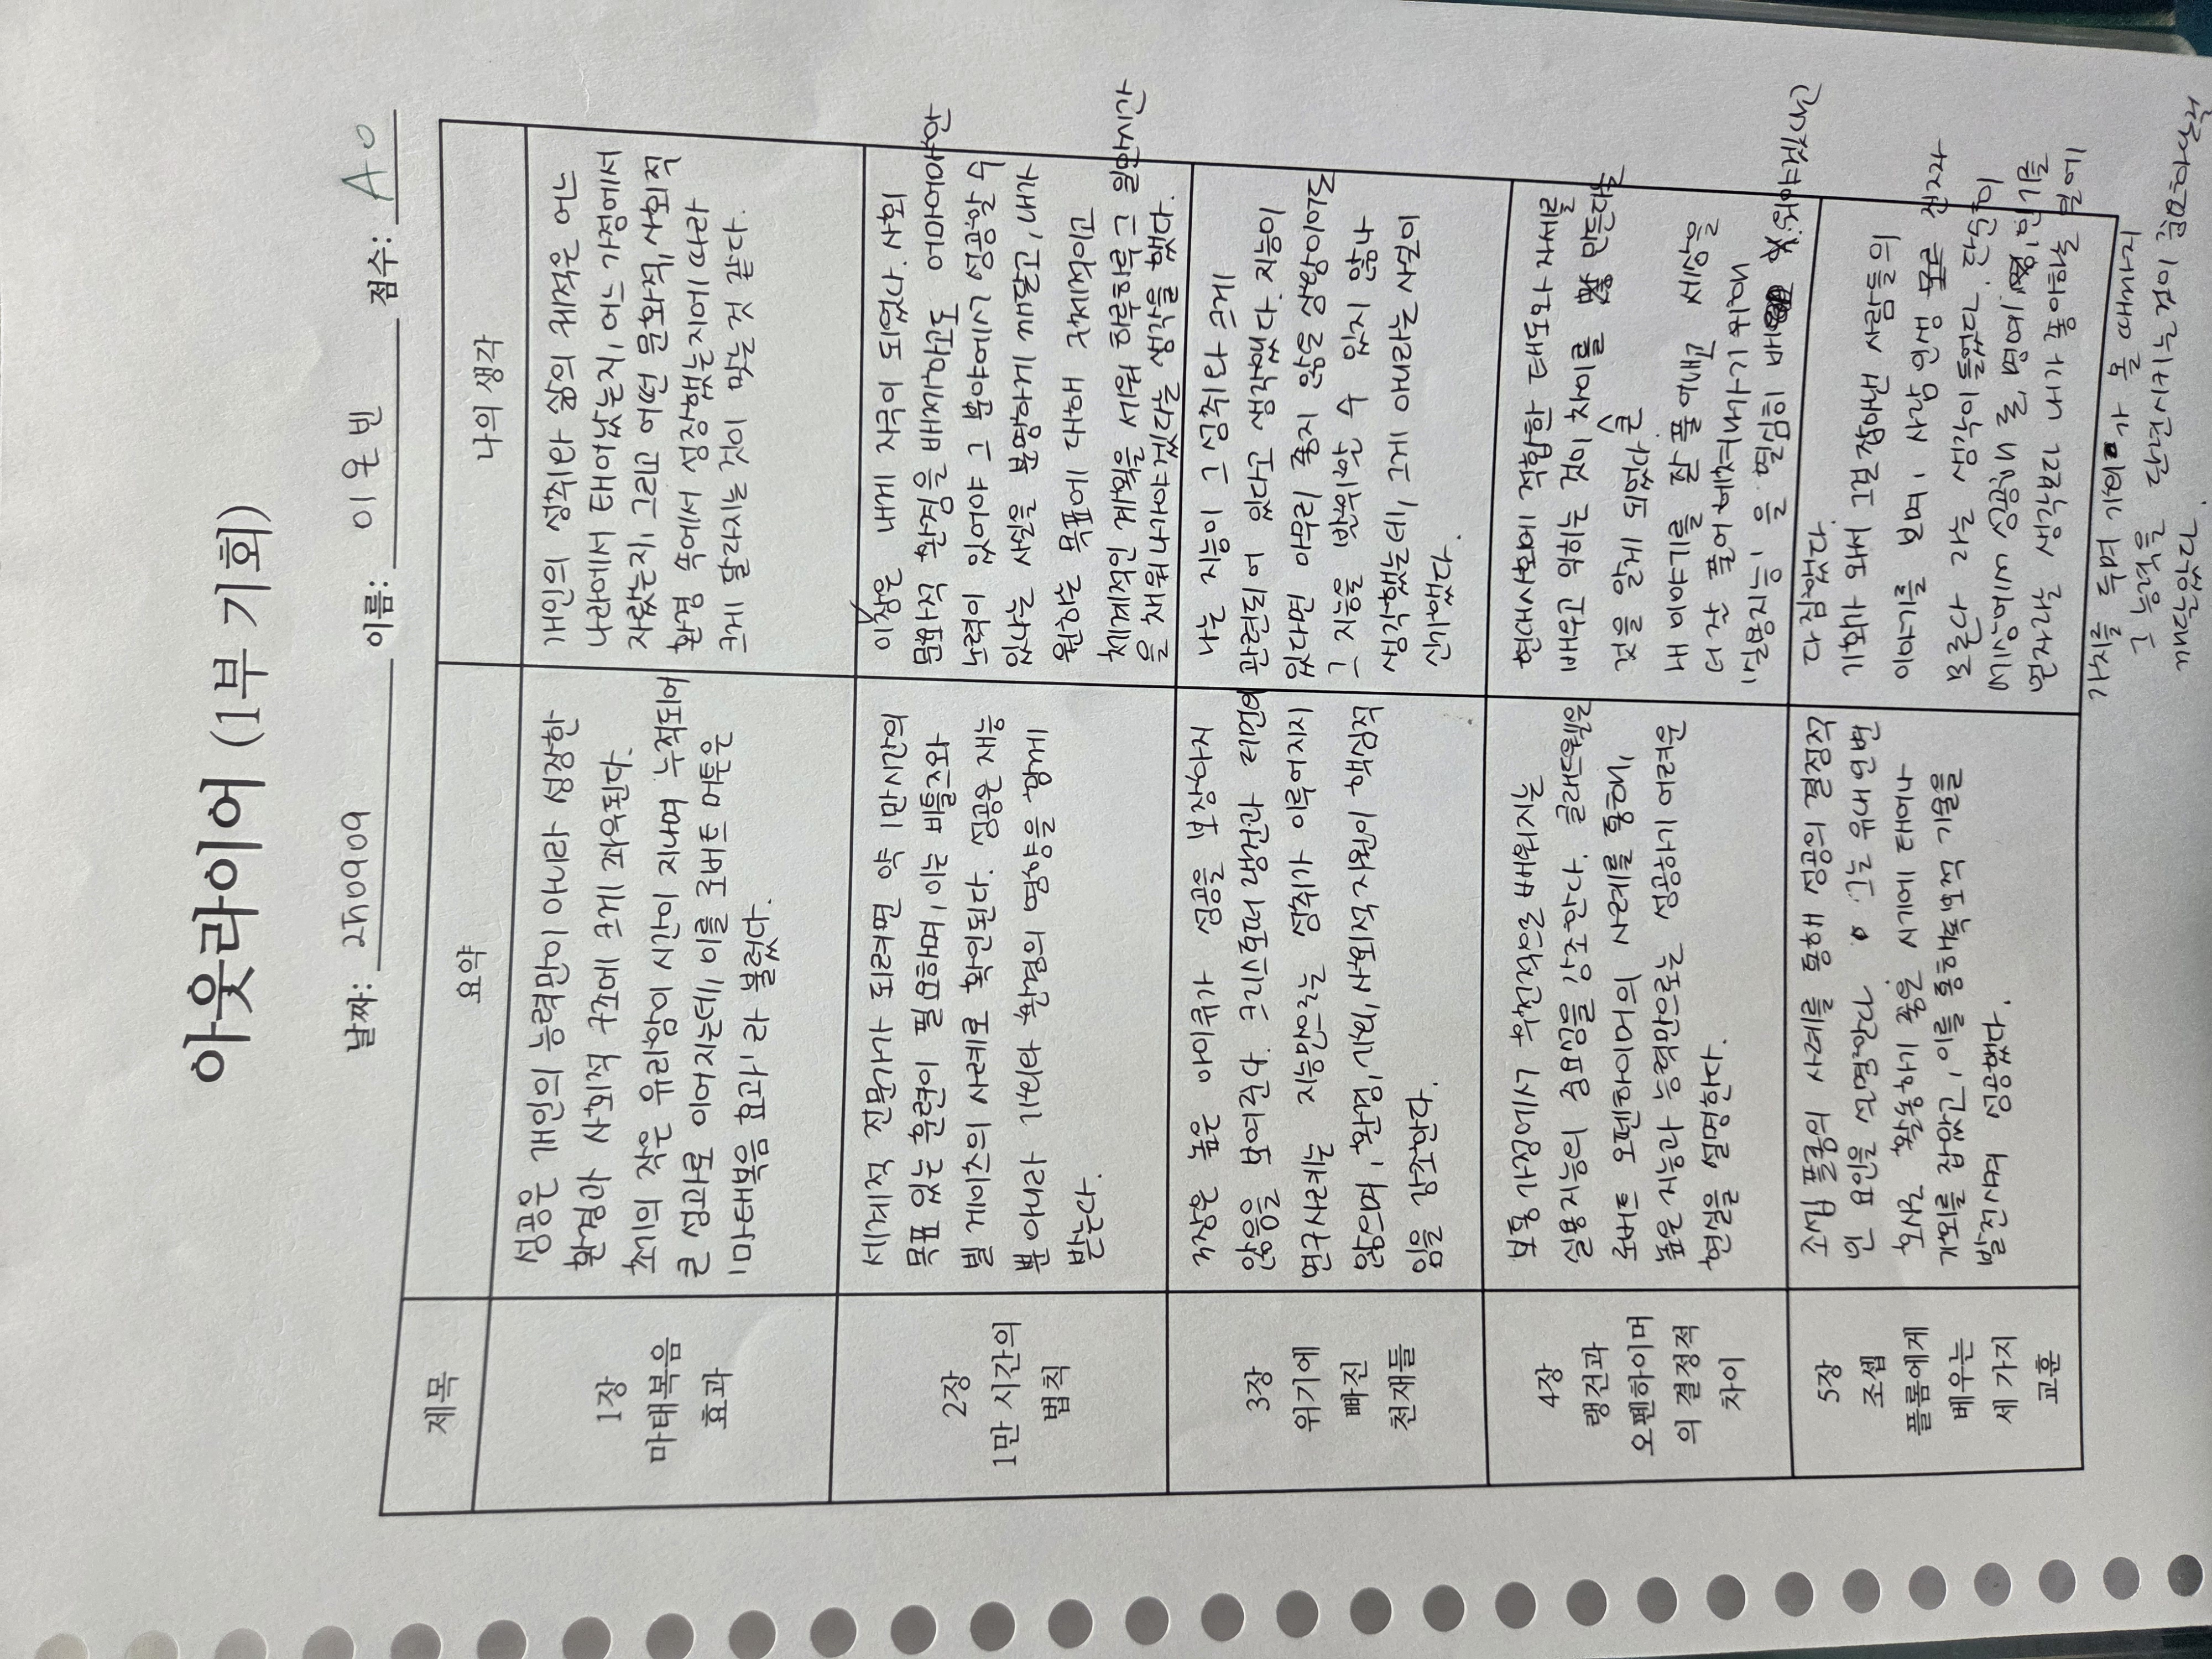 아웃라이어 (1부 기회)
날짜: 250909 이름: 이온빈 점수: A0
제목 요약 나의 생각
1장
마태복음
효과
성공은 개인의 능력만이 아니라 성장한
환경과 사회적 구조에 크게 좌우된다.
초기의 작은 유리함이 시간이 지나며 누적되어
큰 성과로 이어지는데, 이를 로버트 머튼은
'마태복음 효과'라 불렀다.
개인의 성취와 삶의 궤적은 어느
나라에서 태어났는지, 어느 가정에서
자랐는지, 그리고 어떤 문화적, 사회적
환경 속에서 성장했는지에 따라
크게 달라지는 것이 맞는 것 같다.
2장
1만 시간의
법칙
세계적 전문가가 되려면 약 1만시간의
목표 있는 훈련이 필요하며, 이는 비틀즈와
빌 게이츠의 사례로 확인된다. 성공은 재능
뿐 아니라 기회와 환경의 영향을 함께
받는다.
이 장은 내게 자극이 되었다. 사회
문화적 환경을 배제하고도 어마어마한
노력이 있어야 그 분야에서 성공할 수
있다는 사실을 분명하게 깨닫고, 내가
원하는 목표에 대해 구체적이고
체계적인 계획을 세워 하루하루 그 일만시간
을 채워나가야겠다는 생각을 했다.
3장
위기에
빠진
천재들
3장은 높은 아이큐가 성공을 보장하지
않음을 보여준다. 크리스토퍼 랭건과 터먼의
연구사례는 지능만으로는 성취가 이루어지지
않으며, 환경, 기회, 사회적 지원이 핵심적
임을 강조한다.
나는 지능이 그 성취와 크게
관련되어 있다고 생각했다. 지능이
있다면 아무리 좋지 않을 상황이어도
그 지능을 받쳐줄 수 있지 않나
생각했는데, 그게 아니라는 사실이
신기했다.
4장
랭건과
오펜하이머
의 결정적
차이
보통 가정에서 후천적으로 배워지는
실용지능의 중요성을 강조한다. 글래드웰은
로버트 오펜하이머의 사례를 통해,
높은 지능과 능력만으로는 성공하기 어려운
현실을 설명한다.
현대사회에 적합한 태도와 자세를
배우고 익히는 것이 큰 차이를 만든다는
것을 알게 되었다.
내 이야기를 잘 풀어내고 세상을
더 잘 풀어 헤쳐나가기 위해
'실용지능'을 열심히 배워야겠다고
다짐했다.
5장
조셉
플롬에게
배우는
세 가지
교훈
조셉 플롬의 사례를 통해 성공의 결정적
인 요인을 설명한다. 그는 유대인 변
호사로 활동하기 좋은 시기에 태어나
기회를 잡았고, 이를 통해 폭보적 기술을
발전시켜 성공했다.
기회가 와서 그걸 잡아낸 사람들의
이야기를 보며, 사람 인생 진짜
모른다 라는 생각이 들었다. 단순히
세상에서 성공해 돈, 명예, 인기를
얻자라는 생각보다 내가 좋아하는 일에
가치를 두며 기회가 올 때까지
그 능력을 단련시키는 것이 중요하단걸
깨달았다.